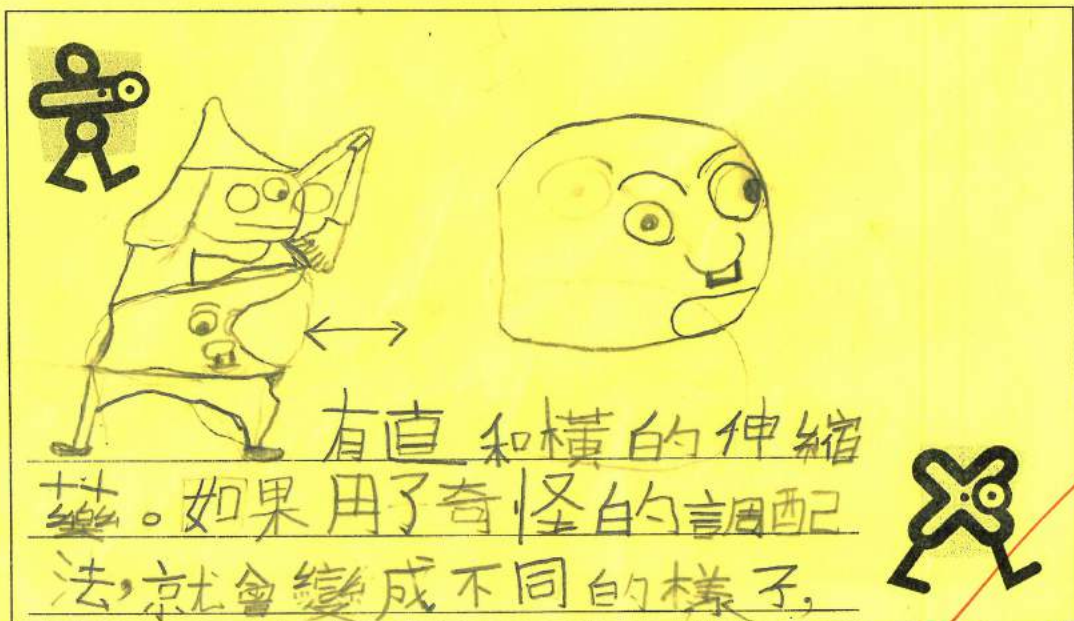 有直和橫的伸縮
藥。如果用了奇怪的調配
法,就會變成不同的樣子,